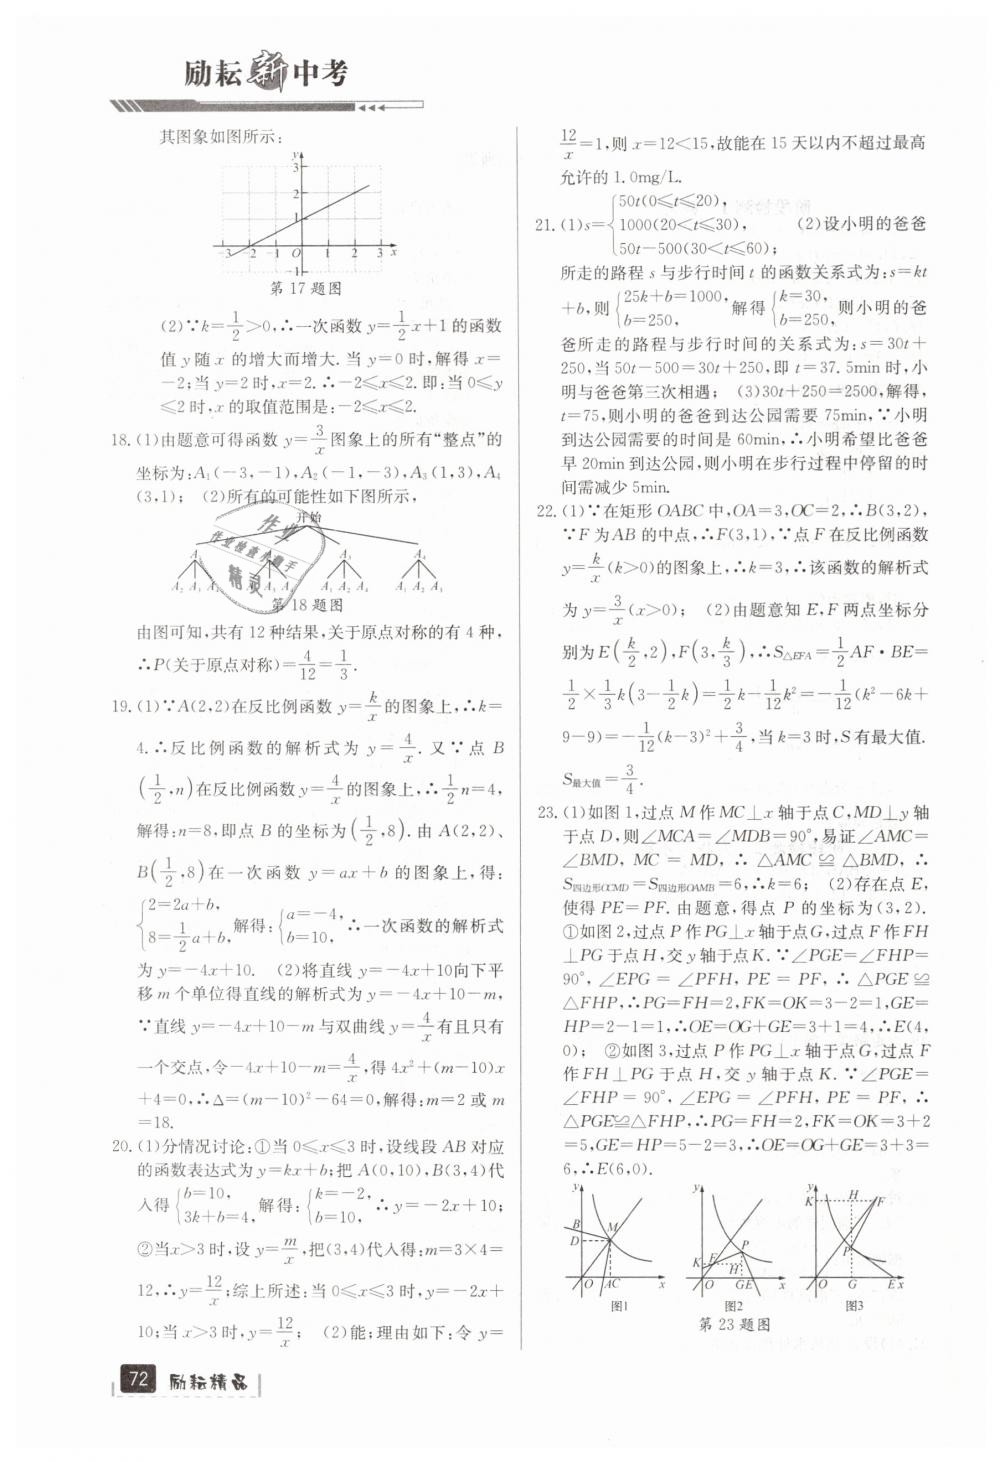 励耘新中考
其图象如图所示:
第 17 题图
(2)∵k=1/2>0,∴一次函数 y=1/2x+1 的函数
值 y 随 x 的增大而增大. 当 y=0 时,解得 x=
-2;当 y=2 时,x=2. ∴-2≤x≤2. 即:当 0≤y
≤2 时,x 的取值范围是:-2≤x≤2.
18. (1)由题意可得函数 y=3/x 图象上的所有“整点”的
坐标为:A₁(-3,-1),A₂(-1,-3),A₃(1,3),A₄
(3,1); (2)所有的可能性如下图所示,
开始
第 18 题图
由图可知,共有 12 种结果,关于原点对称的有 4 种,
∴P(关于原点对称)=4/12=1/3.
19. (1)∵A(2,2)在反比例函数 y=k/x 的图象上,∴k=
4. ∴反比例函数的解析式为 y=4/x. 又∵点 B
(1/2,n)在反比例函数 y=4/x 的图象上,∴1/2n=4,
解得:n=8,即点 B 的坐标为(1/2,8). 由 A(2,2)、
B(1/2,8)在一次函数 y=ax+b 的图象上,得:
{2=2a+b, 8=1/2a+b, 解得:{a=-4, b=10, ∴一次函数的解析式
为 y=-4x+10. (2)将直线 y=-4x+10向下平
移 m 个单位得直线的解析式为 y=-4x+10-m,
∵直线 y=-4x+10-m 与双曲线 y=4/x 有且只有
一个交点,令-4x+10-m=4/x,得 4x²+(m-10)x
+4=0,∴Δ=(m-10)²-64=0,解得:m=2 或 m
=18.
20. (1)分情况讨论:①当 0≤x≤3 时,设线段 AB 对应
的函数表达式为 y=kx+b;把 A(0,10),B(3,4)代
入得{b=10, 3k+b=4, 解得:{k=-2, b=10, ∴y=-2x+10;
②当x>3 时,设 y=m/x,把(3,4)代入得:m=3×4=
12,∴y=12/x;综上所述:当 0≤x≤3 时,y=-2x+
10;当 x>3 时,y=12/x; (2)能;理由如下:令 y=
12/x=1,则 x=12<15,故能在 15 天以内不超过最高
允许的 1.0mg/L.
21. (1)s={50t(0≤t≤20), 1000(20<t≤30), 50t-500(30<t≤60); (2)设小明的爸爸
所走的路程 s 与步行时间 t 的函数关系式为:s=kt
+b,则{25k+b=1000, b=250, 解得{k=30, b=250, 则小明的爸
爸所走的路程与步行时间的关系式为:s=30t+
250,当 50t-500=30t+250,即 t=37.5min 时,小
明与爸爸第三次相遇; (3)30t+250=2500,解得,
t=75,则小明的爸爸到达公园需要 75min,∵小明
到达公园需要的时间是 60min,∴小明希望比爸爸
早 20min 到达公园,则小明在步行过程中停留的时
间需减少 5min.
22. (1)∵在矩形 OABC 中,OA=3,OC=2,∴B(3,2),
∵F 为AB 的中点,∴F(3,1),∵点 F 在反比例函数
y=k/x(k>0)的图象上,∴k=3,∴该函数的解析式
为 y=3/x(x>0); (2)由题意知 E,F 两点坐标分
别为 E(k/2,2),F(3,k/3),∴S△EFA=1/2AF·BE=
1/2×1/3k(3-1/2k)=1/2k-1/12k²=-1/12(k²-6k+
9-9)=-1/12(k-3)²+3/4,当 k=3 时,S 有最大值.
S最大值=3/4.
23. (1)如图 1,过点 M 作 MC⊥x 轴于点 C,MD⊥y 轴
于点 D,则∠MCA=∠MDB=90°,易证∠AMC=
∠BMD, MC = MD, ∴ △AMC ≌ △BMD, ∴
S四边形OCMD=S四边形OAMB=6,∴k=6; (2)存在点 E,
使得 PE=PF. 由题意,得点 P 的坐标为(3,2).
①如图 2,过点 P 作 PG⊥x 轴于点G,过点 F 作FH
⊥PG 于点 H,交 y 轴于点 K. ∵∠PGE=∠FHP=
90°, ∠EPG = ∠PFH, PE = PF, ∴ △PGE ≌
△FHP,∴PG=FH=2,FK=OK=3-2=1,GE=
HP=2-1=1,∴OE=OG+GE=3+1=4,∴E(4,
0); ②如图 3,过点 P 作 PG⊥x 轴于点 G,过点 F
作 FH⊥PG 于点 H,交 y 轴于点 K. ∵∠PGE=
∠FHP = 90°, ∠EPG = ∠PFH, PE = PF, ∴
△PGE≌△FHP,∴PG=FH=2,FK=OK=3+2
=5,GE=HP=5-2=3,∴OE=OG+GE=3+3=
6,∴E(6,0).
图1 图2 图3
第 23 题图
72 励耘精品